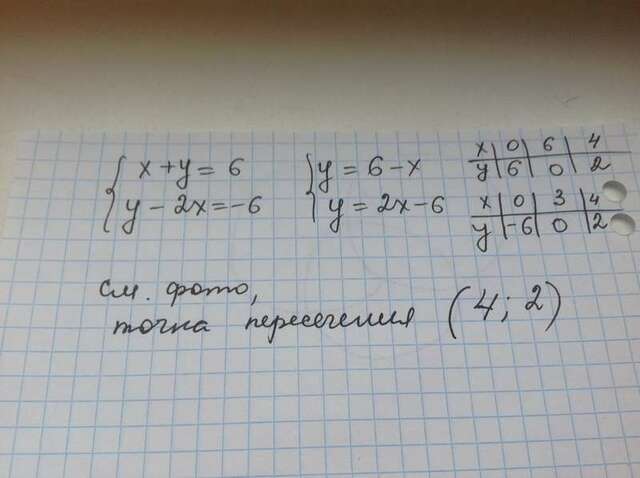 { x + y = 6
{ y - 2x = -6
{ y = 6 - x
{ y = 2x - 6
x | 0 | 6 | 4
y | 6 | 0 | 2
x | 0 | 3 | 4
y | -6 | 0 | 2
см. фото,
точка пересечения (4; 2)